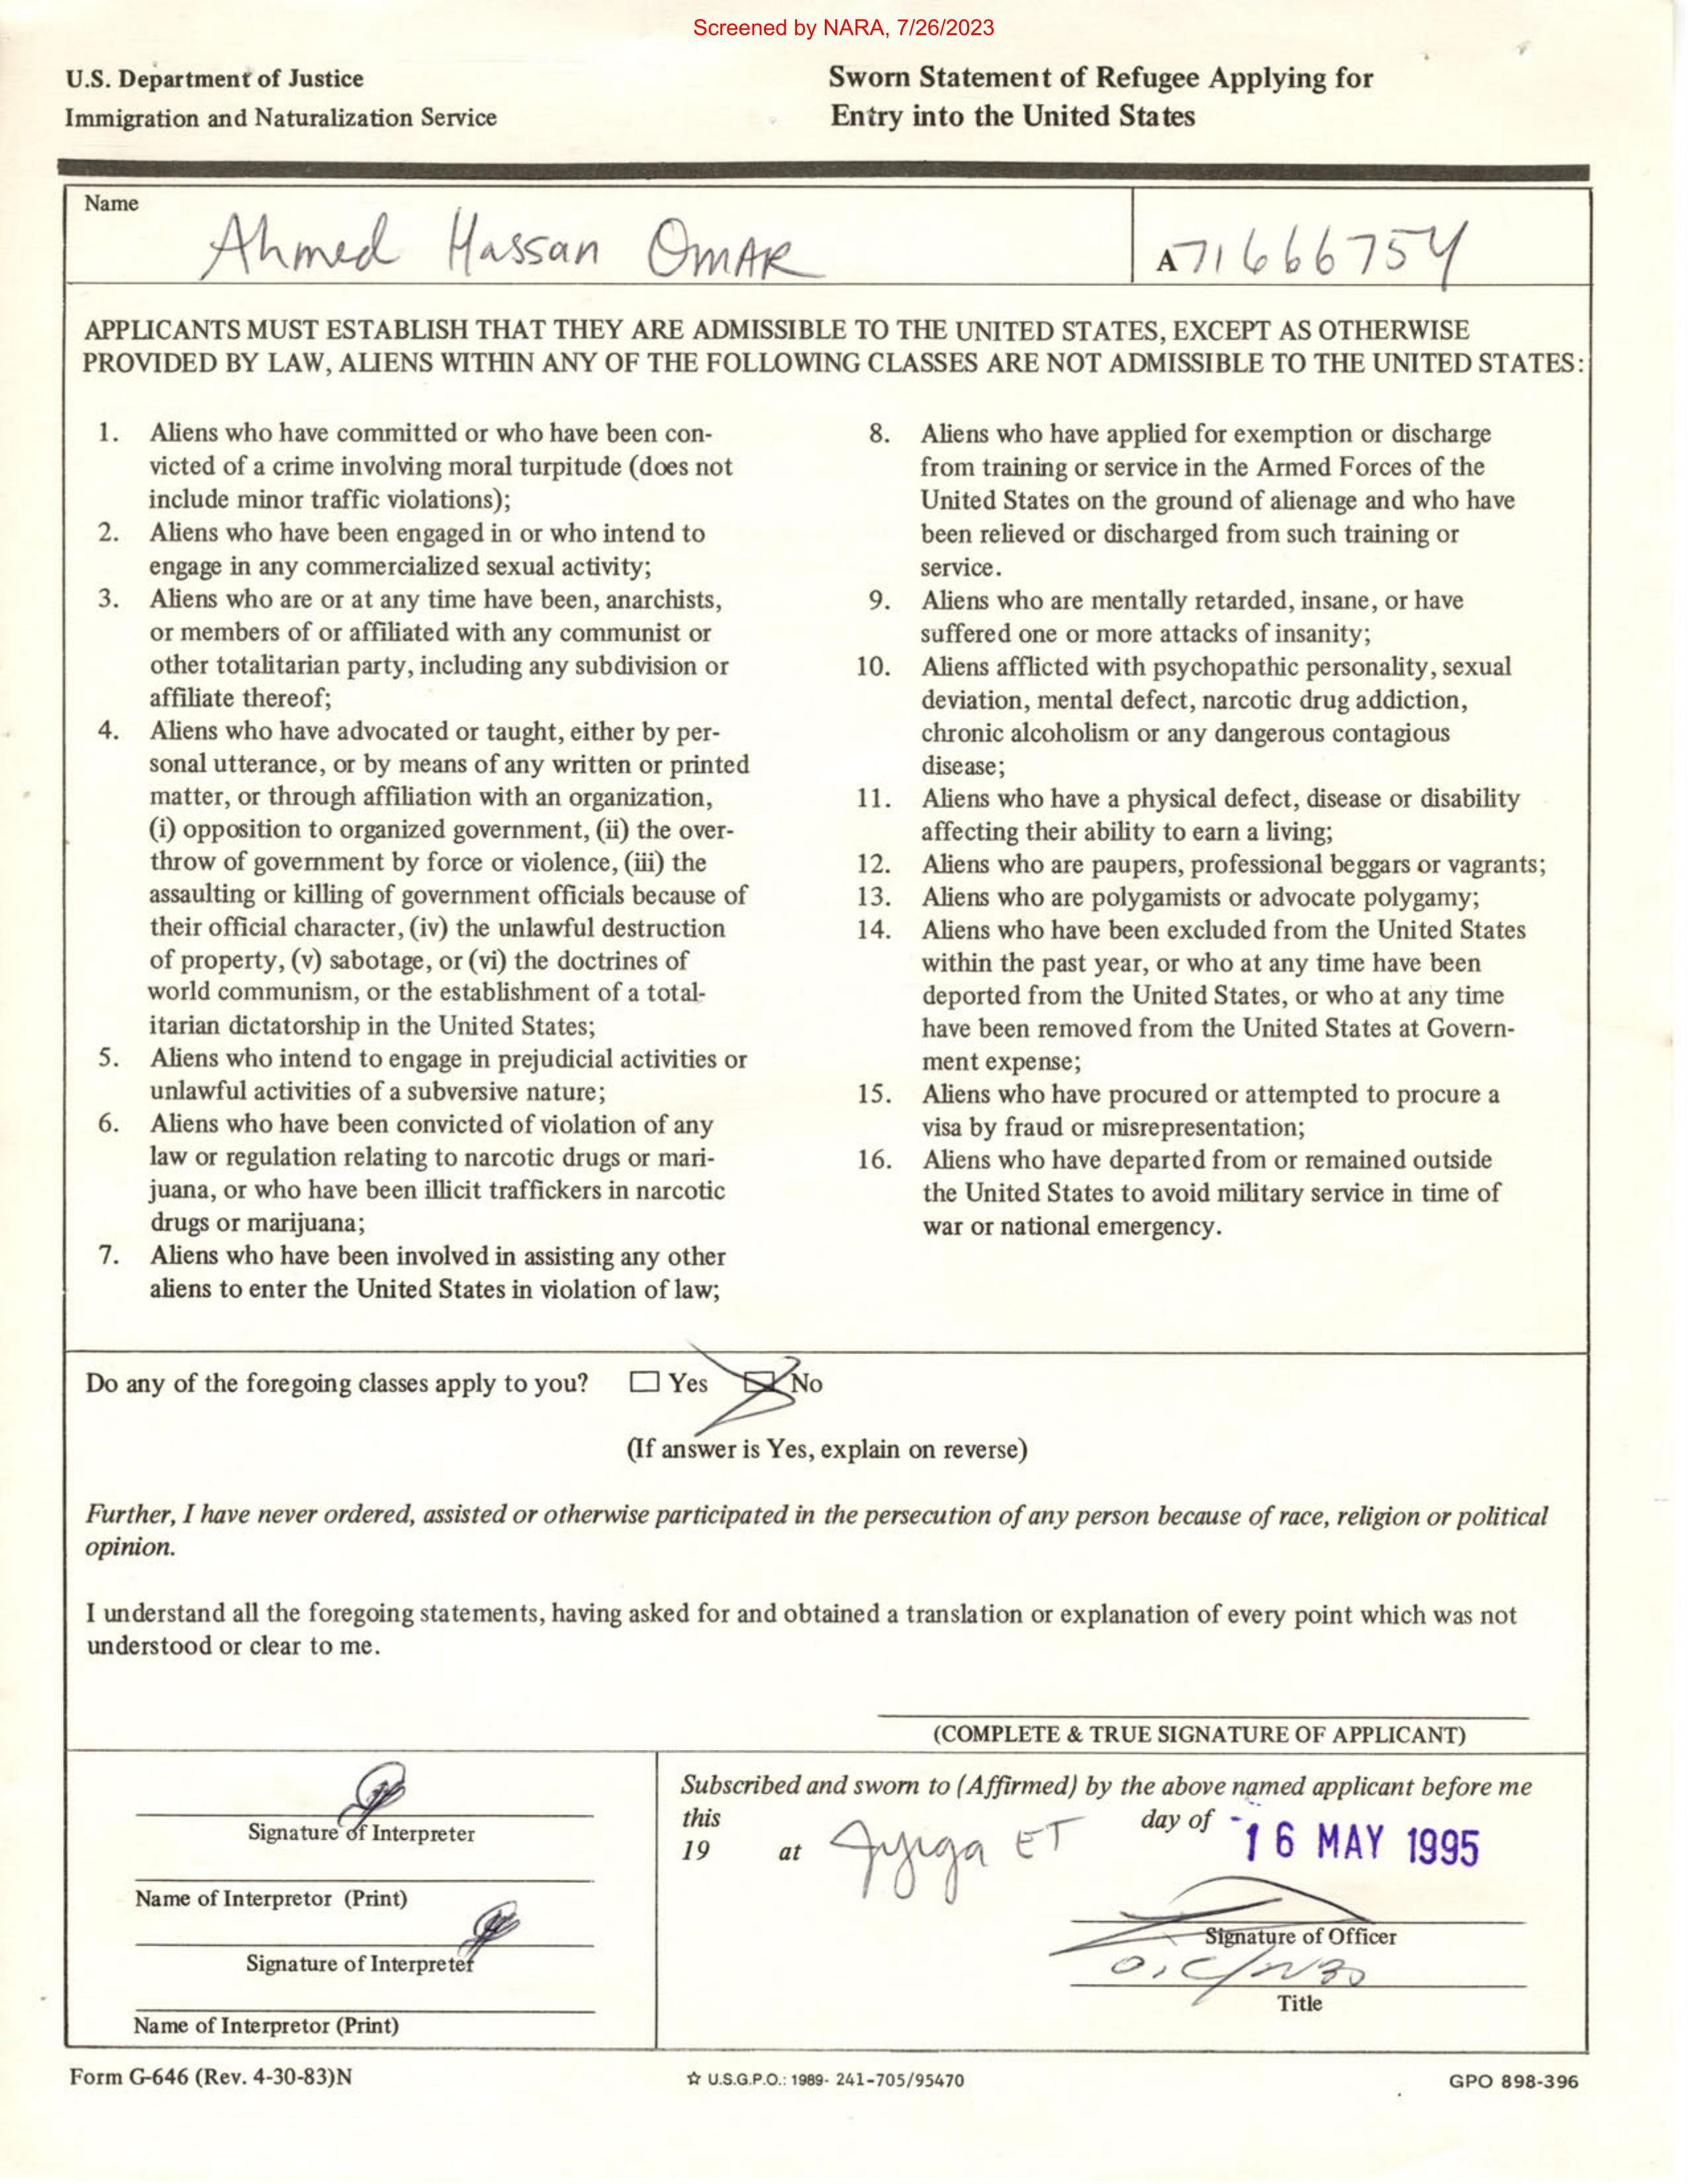 Screened by NARA, 7/26/2023
U.S. Department of Justice
Immigration and Naturalization Service
Sworn Statement of Refugee Applying for
Entry into the United States
Name
Ahmed Hassan OMAR
A71666754
APPLICANTS MUST ESTABLISH THAT THEY ARE ADMISSIBLE TO THE UNITED STATES, EXCEPT AS OTHERWISE
PROVIDED BY LAW, ALIENS WITHIN ANY OF THE FOLLOWING CLASSES ARE NOT ADMISSIBLE TO THE UNITED STATES:
1. Aliens who have committed or who have been con-
victed of a crime involving moral turpitude (does not
include minor traffic violations);
2. Aliens who have been engaged in or who intend to
engage in any commercialized sexual activity;
3. Aliens who are or at any time have been, anarchists,
or members of or affiliated with any communist or
other totalitarian party, including any subdivision or
affiliate thereof;
4. Aliens who have advocated or taught, either by per-
sonal utterance, or by means of any written or printed
matter, or through affiliation with an organization,
(i) opposition to organized government, (ii) the over-
throw of government by force or violence, (iii) the
assaulting or killing of government officials because of
their official character, (iv) the unlawful destruction
of property, (v) sabotage, or (vi) the doctrines of
world communism, or the establishment of a total-
itarian dictatorship in the United States;
5. Aliens who intend to engage in prejudicial activities or
unlawful activities of a subversive nature;
6. Aliens who have been convicted of violation of any
law or regulation relating to narcotic drugs or mari-
juana, or who have been illicit traffickers in narcotic
drugs or marijuana;
7. Aliens who have been involved in assisting any other
aliens to enter the United States in violation of law;
8. Aliens who have applied for exemption or discharge
from training or service in the Armed Forces of the
United States on the ground of alienage and who have
been relieved or discharged from such training or
service.
9. Aliens who are mentally retarded, insane, or have
suffered one or more attacks of insanity;
10. Aliens afflicted with psychopathic personality, sexual
deviation, mental defect, narcotic drug addiction,
chronic alcoholism or any dangerous contagious
disease;
11. Aliens who have a physical defect, disease or disability
affecting their ability to earn a living;
12. Aliens who are paupers, professional beggars or vagrants;
13. Aliens who are polygamists or advocate polygamy;
14. Aliens who have been excluded from the United States
within the past year, or who at any time have been
deported from the United States, or who at any time
have been removed from the United States at Govern-
ment expense;
15. Aliens who have procured or attempted to procure a
visa by fraud or misrepresentation;
16. Aliens who have departed from or remained outside
the United States to avoid military service in time of
war or national emergency.
Do any of the foregoing classes apply to you? Yes No
(If answer is Yes, explain on reverse)
Further, I have never ordered, assisted or otherwise participated in the persecution of any person because of race, religion or political
opinion.
I understand all the foregoing statements, having asked for and obtained a translation or explanation of every point which was not
understood or clear to me.
(COMPLETE & TRUE SIGNATURE OF APPLICANT)
Signature of Interpreter
Name of Interpretor (Print)
Signature of Interpreter
Name of Interpretor (Print)
Subscribed and sworn to (Affirmed) by the above named applicant before me
this day of 16 MAY 1995
19 at ET
Signature of Officer
Title
Form G-646 (Rev. 4-30-83)N
☆ U.S.G.P.O.: 1989- 241-705/95470
GPO 898-396